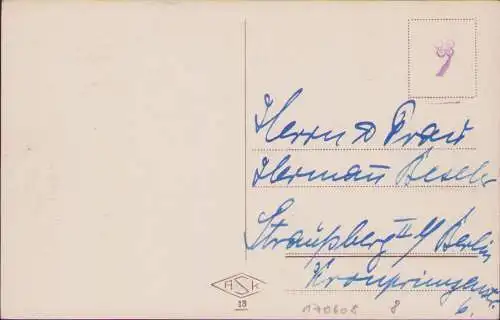 Herrn & Frau
Hermann Besek
Straußberg II b/ Berlin
Kronprinzenstr.
6.
HSK
13
170608 8